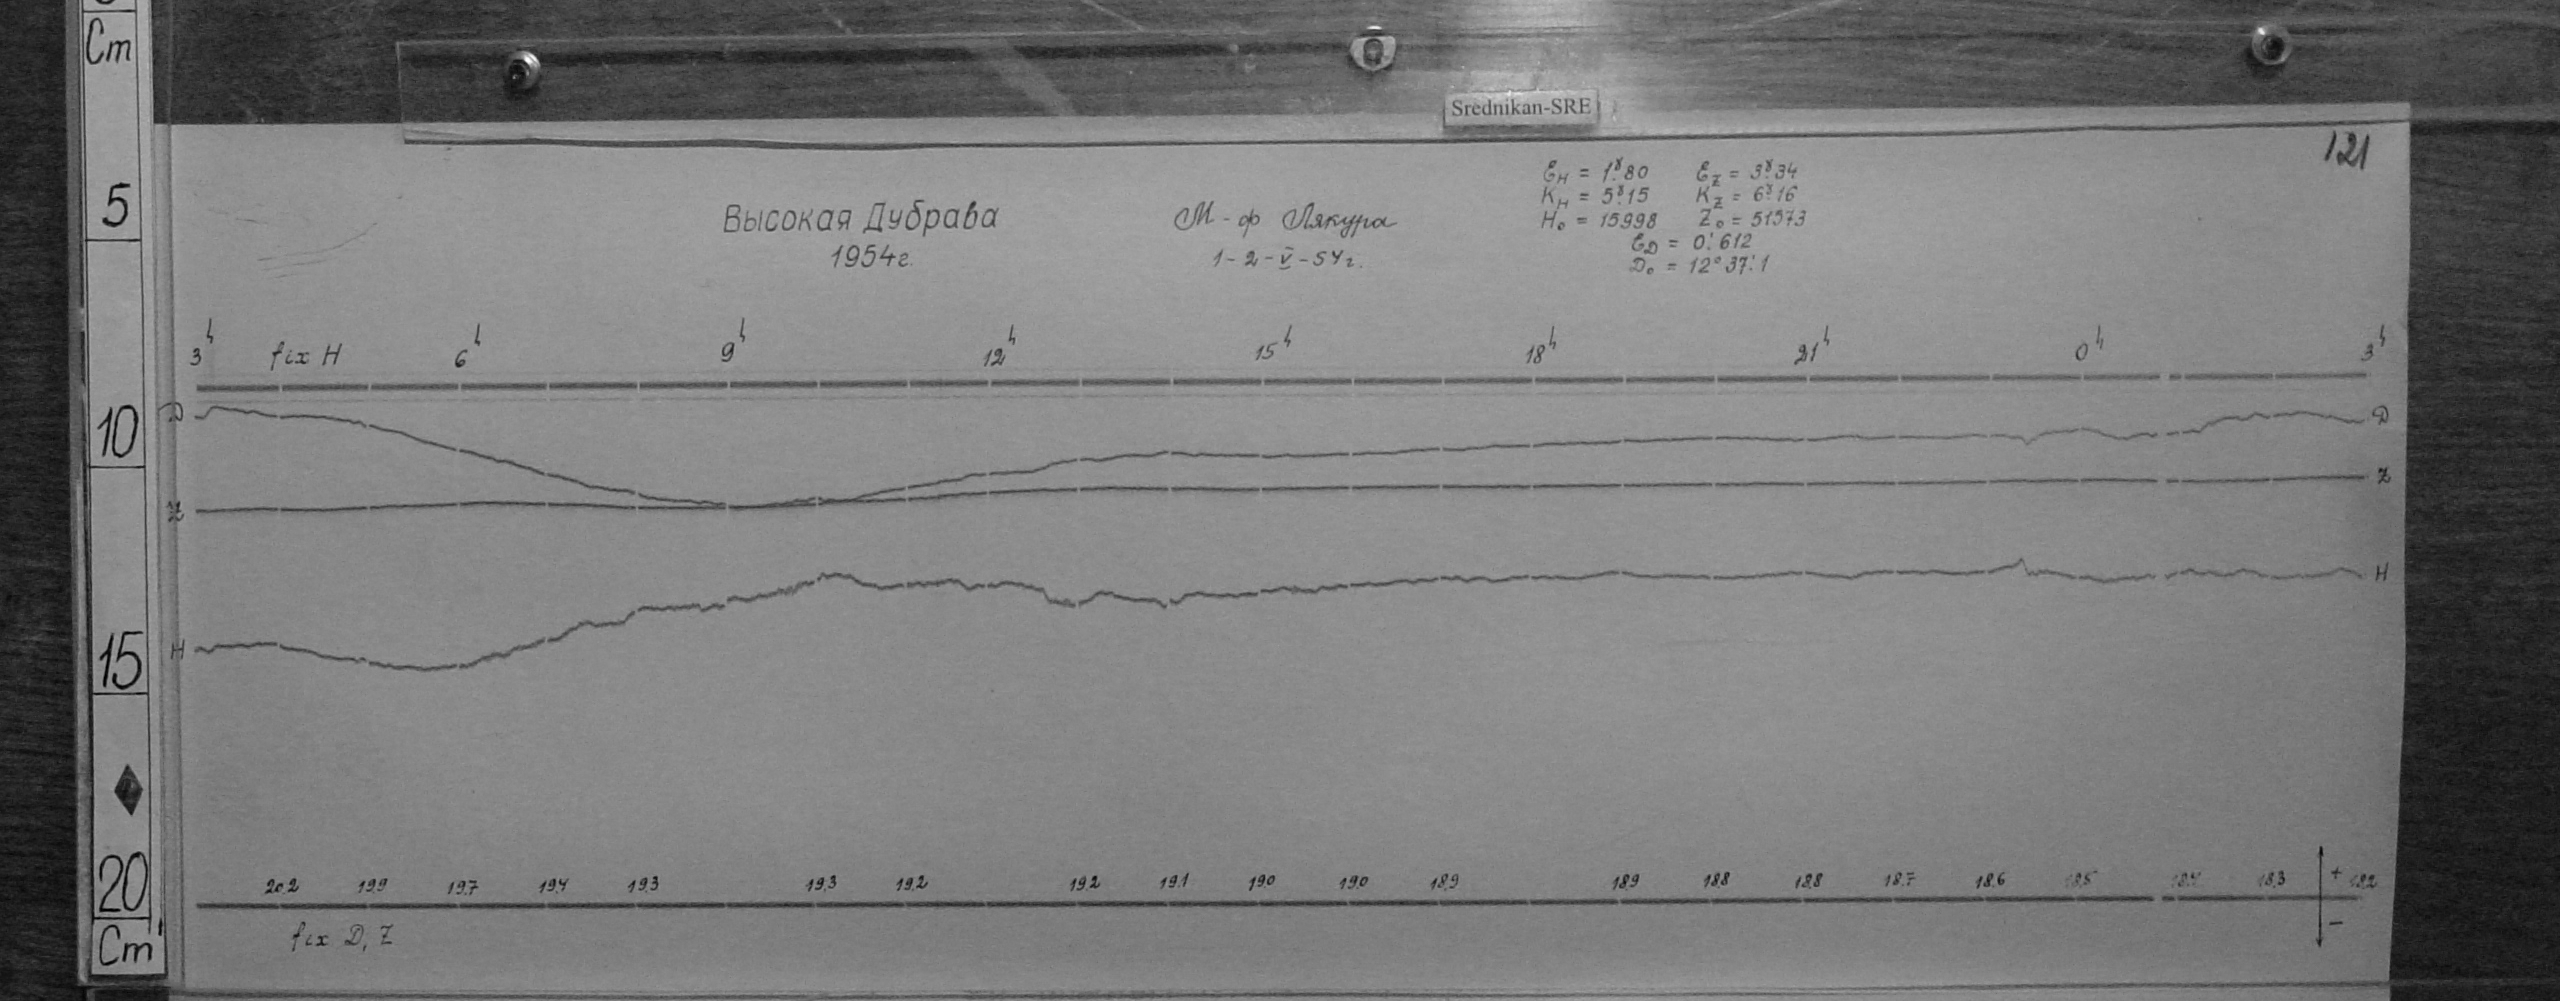 Cm
5
10
15
20
Cm
Srednikan-SRE
121
Высокая Дубрава
1954г.
М-ф Лякура
1-2-V-54г.
Ɛн = 1ˠ.80 Ɛz = 3ˠ.34
Kн = 5ˠ.15 Kz = 6ˠ.16
H₀ = 15998 Z₀ = 51573
ƐD = 0'.612
D₀ = 12°37'.1
3ʰ fix H 6ʰ 9ʰ 12ʰ 15ʰ 18ʰ 21ʰ 0ʰ 3ʰ
D D
Z Z
H H
20.2 19.9 19.7 19.4 19.3 19.3 19.2 19.2 19.1 19.0 19.0 18.9 18.9 18.8 18.8 18.7 18.6 18.5 18.4 18.3 + 18.2
fix D, Z −